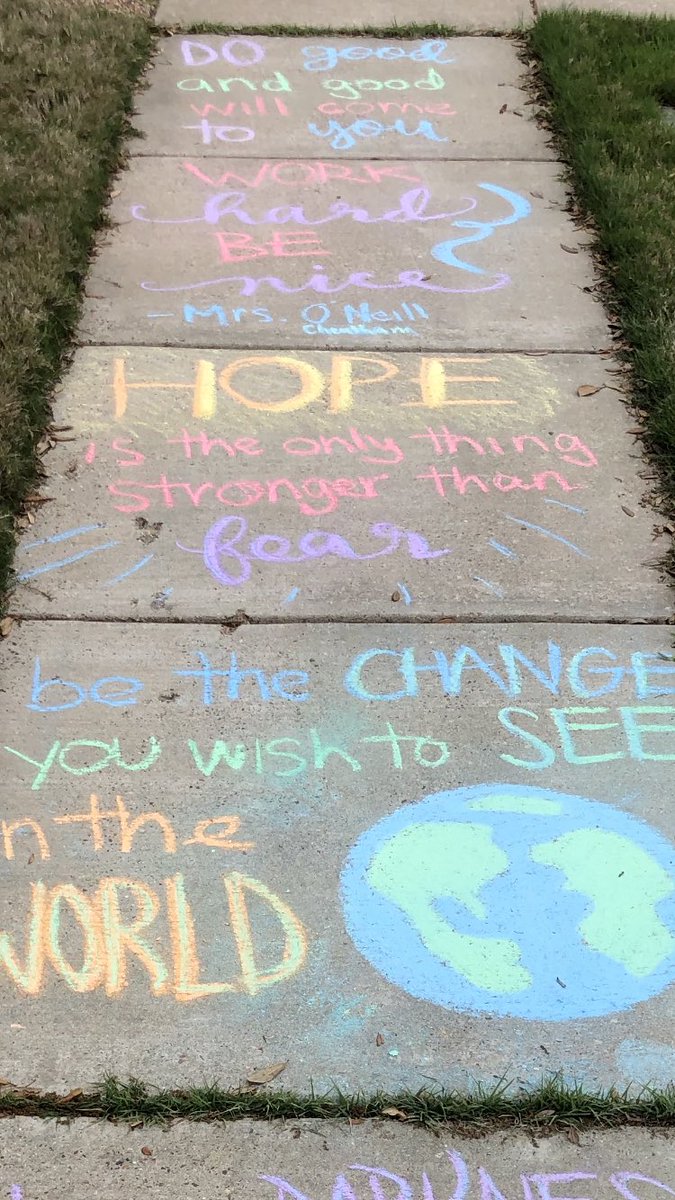 DO good
and good
will come
to you
WORK
hard
BE
nice
-Mrs. O'Neill
Cheatham
HOPE
is the only thing
stronger than
fear
be the CHANGE
you wish to SEE
in the
WORLD
DARKNESS